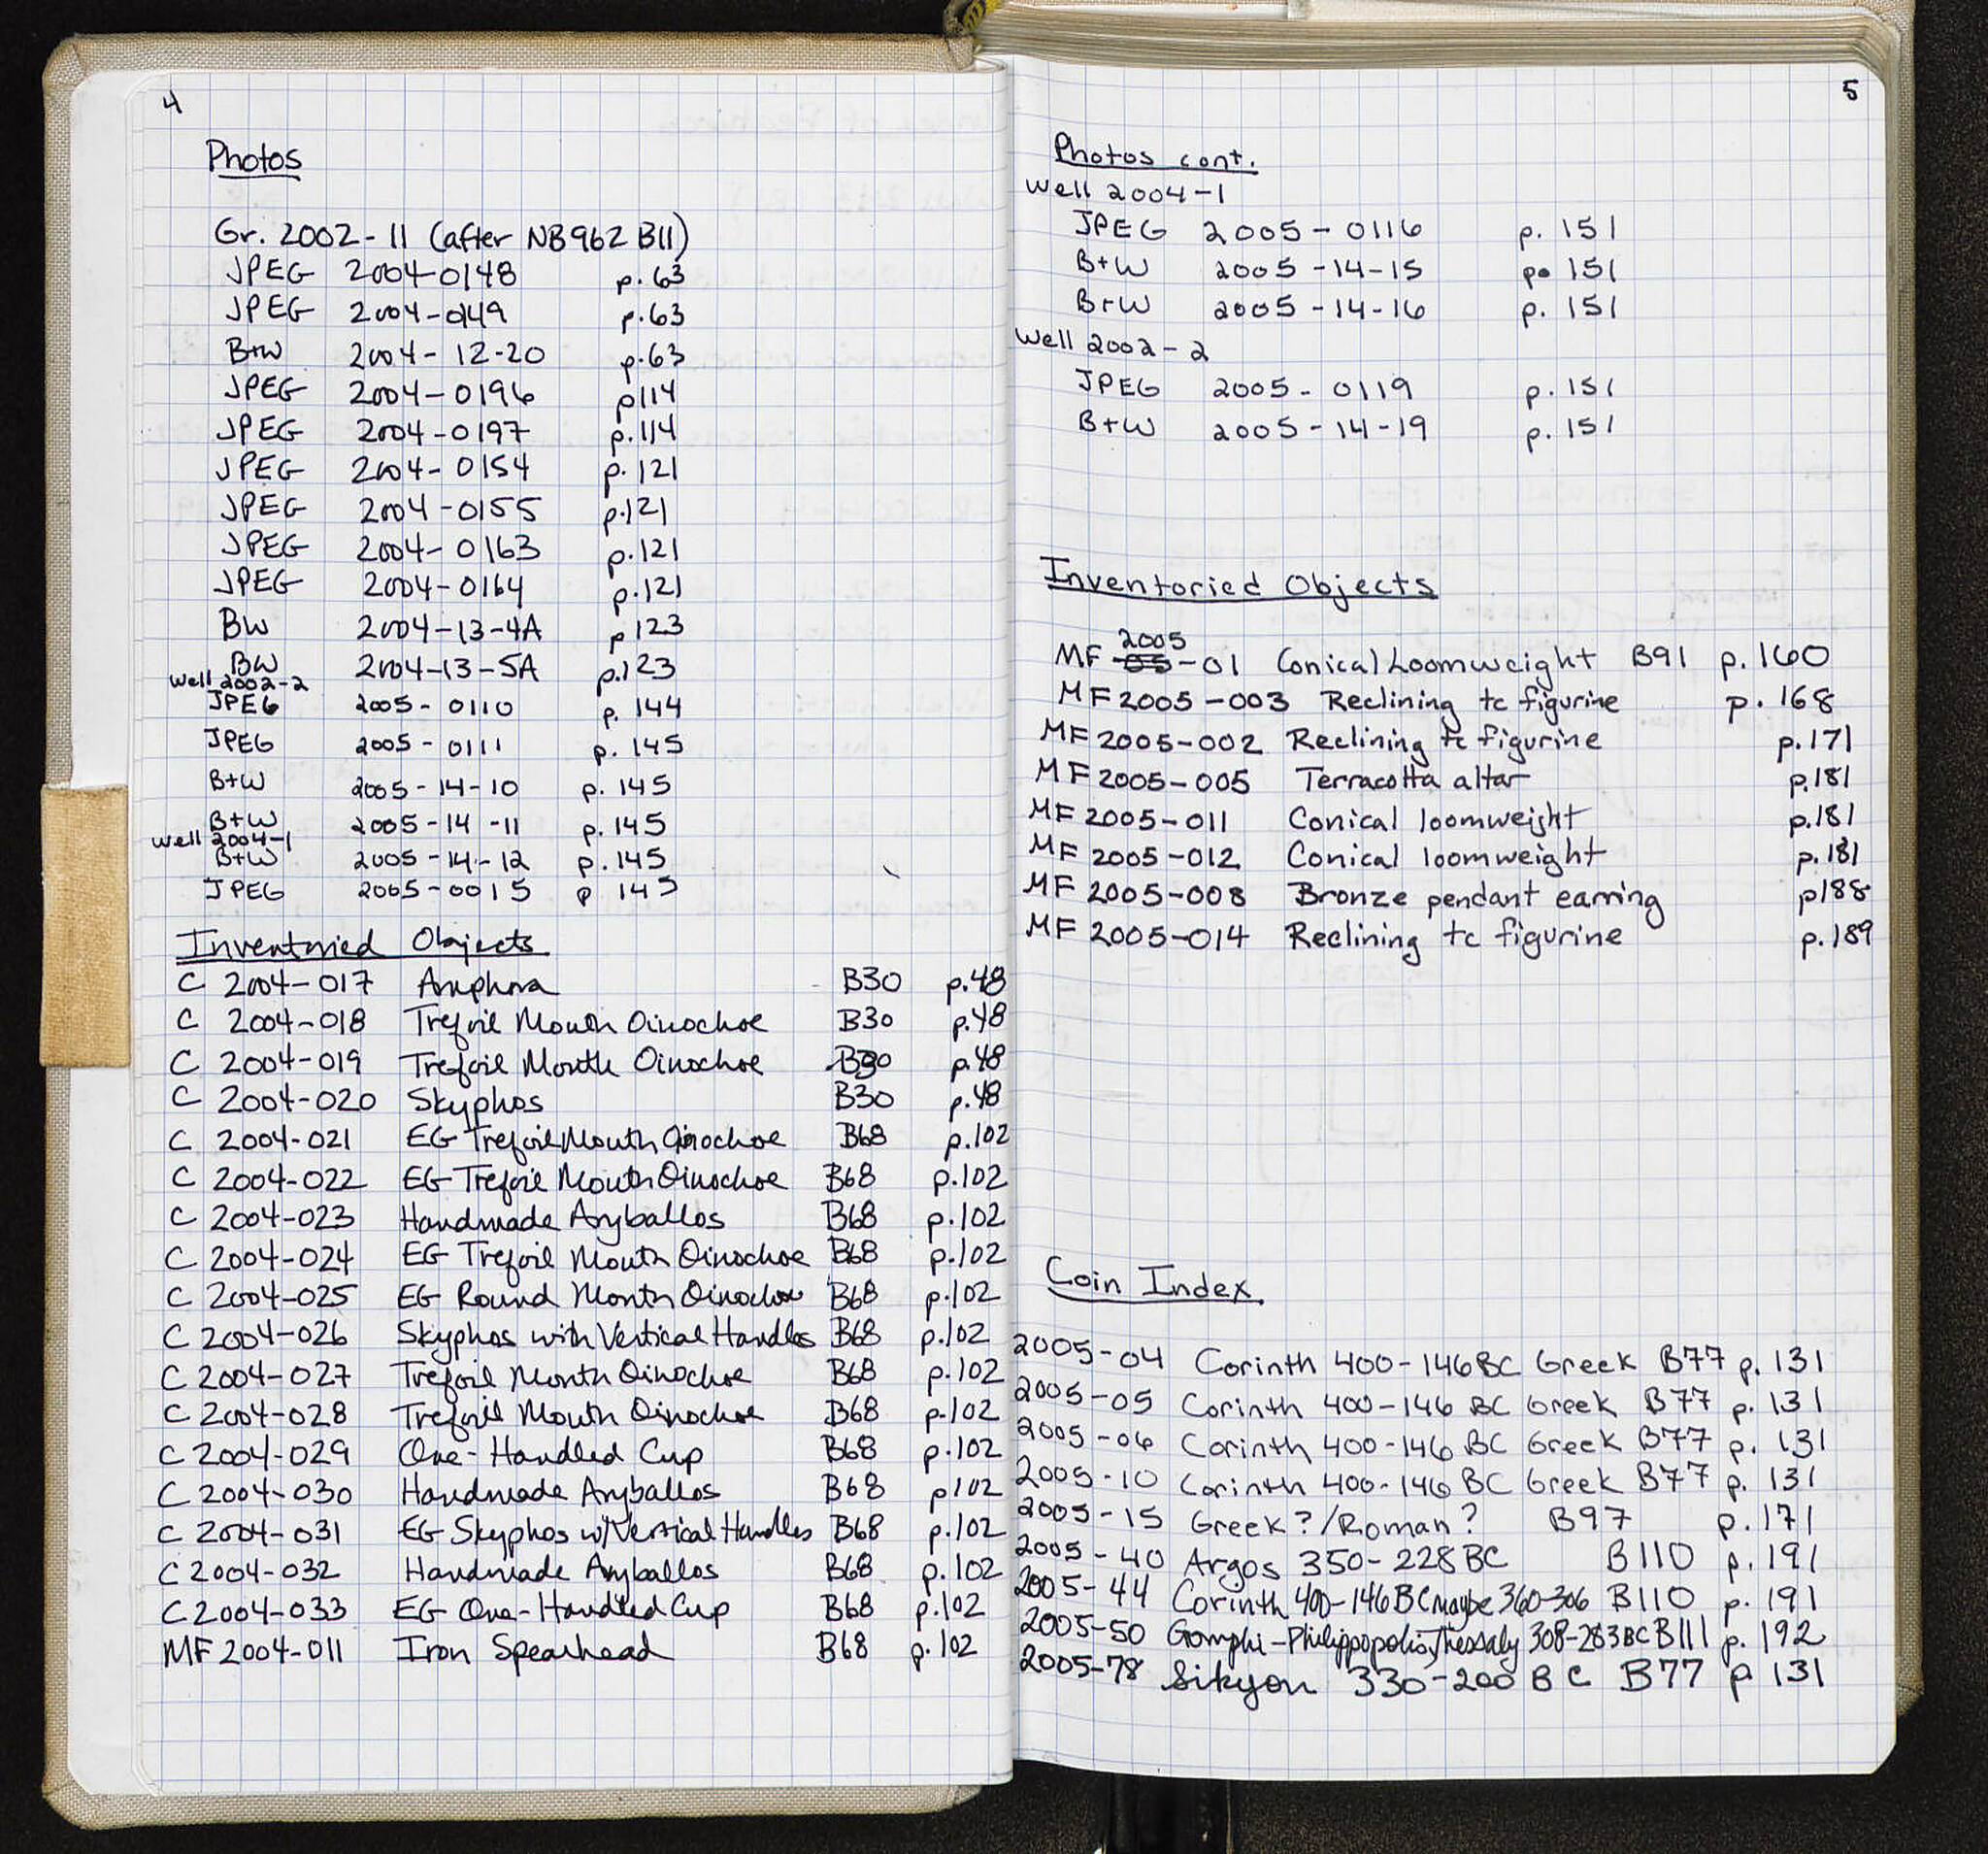 4
Photos
Gr. 2002-11 (after NB962 B11)
JPEG 2004-0148 p.63
JPEG 2004-0149 p.63
B+W 2004-12-20 p.63
JPEG 2004-0196 p114
JPEG 2004-0197 p.114
JPEG 2004-0154 p.121
JPEG 2004-0155 p.121
JPEG 2004-0163 p.121
JPEG 2004-0164 p.121
BW 2004-13-4A p123
BW 2004-13-5A p.123
Well 2002-2
JPEG 2005-0110 p. 144
JPEG 2005-0111 p. 145
B+W 2005-14-10 p. 145
B+W 2005-14-11 p. 145
Well 2004-1
B+W 2005-14-12 p. 145
JPEG 2005-0015 p 145
Inventoried Objects
C 2004-017 Amphora B30 p.48
C 2004-018 Trefoil Mouth Oinochoe B30 p.48
C 2004-019 Trefoil Mouth Oinochoe B30 p.48
C 2004-020 Skyphos B30 p.48
C 2004-021 EG Trefoil Mouth Oinochoe B68 p.102
C 2004-022 EG Trefoil Mouth Oinochoe B68 p.102
C 2004-023 Handmade Aryballos B68 p.102
C 2004-024 EG Trefoil Mouth Oinochoe B68 p.102
C 2004-025 EG Round Mouth Oinochoe B68 p.102
C 2004-026 Skyphos with Vertical Handles B68 p.102
C 2004-027 Trefoil Mouth Oinochoe B68 p.102
C 2004-028 Trefoil Mouth Oinochoe B68 p.102
C 2004-029 One-Handled Cup B68 p.102
C 2004-030 Handmade Aryballos B68 p102
C 2004-031 EG Skyphos w/Vertical Handles B68 p.102
C 2004-032 Handmade Aryballos B68 p.102
C 2004-033 EG One-Handled Cup B68 p.102
MF 2004-011 Iron Spearhead B68 p.102
5
Photos cont.
Well 2004-1
JPEG 2005-0116 p. 151
B+W 2005-14-15 p. 151
B+W 2005-14-16 p. 151
Well 2002-2
JPEG 2005-0119 p. 151
B+W 2005-14-19 p. 151
Inventoried Objects
2005
MF 05-01 Conical Loomweight B91 p. 160
MF 2005-003 Reclining tc figurine p. 168
MF 2005-002 Reclining tc figurine p.171
MF 2005-005 Terracotta altar p.181
MF 2005-011 Conical loomweight p.181
MF 2005-012 Conical loomweight p.181
MF 2005-008 Bronze pendant earring p188
MF 2005-014 Reclining tc figurine p.189
Coin Index
2005-04 Corinth 400-146BC Greek B77 p. 131
2005-05 Corinth 400-146 BC Greek B77 p. 131
2005-06 Corinth 400-146 BC Greek B77 p. 131
2005-10 Corinth 400-146 BC Greek B77 p. 131
2005-15 Greek?/Roman? B97 p.171
2005-40 Argos 350-228 BC B110 p. 191
2005-44 Corinth 400-146BC maybe 360-306 B110 p. 191
2005-50 Gomphi-Philippopolis, Thessaly 308-283BC B111 p. 192
2005-78 Sikyon 330-200 BC B77 p 131